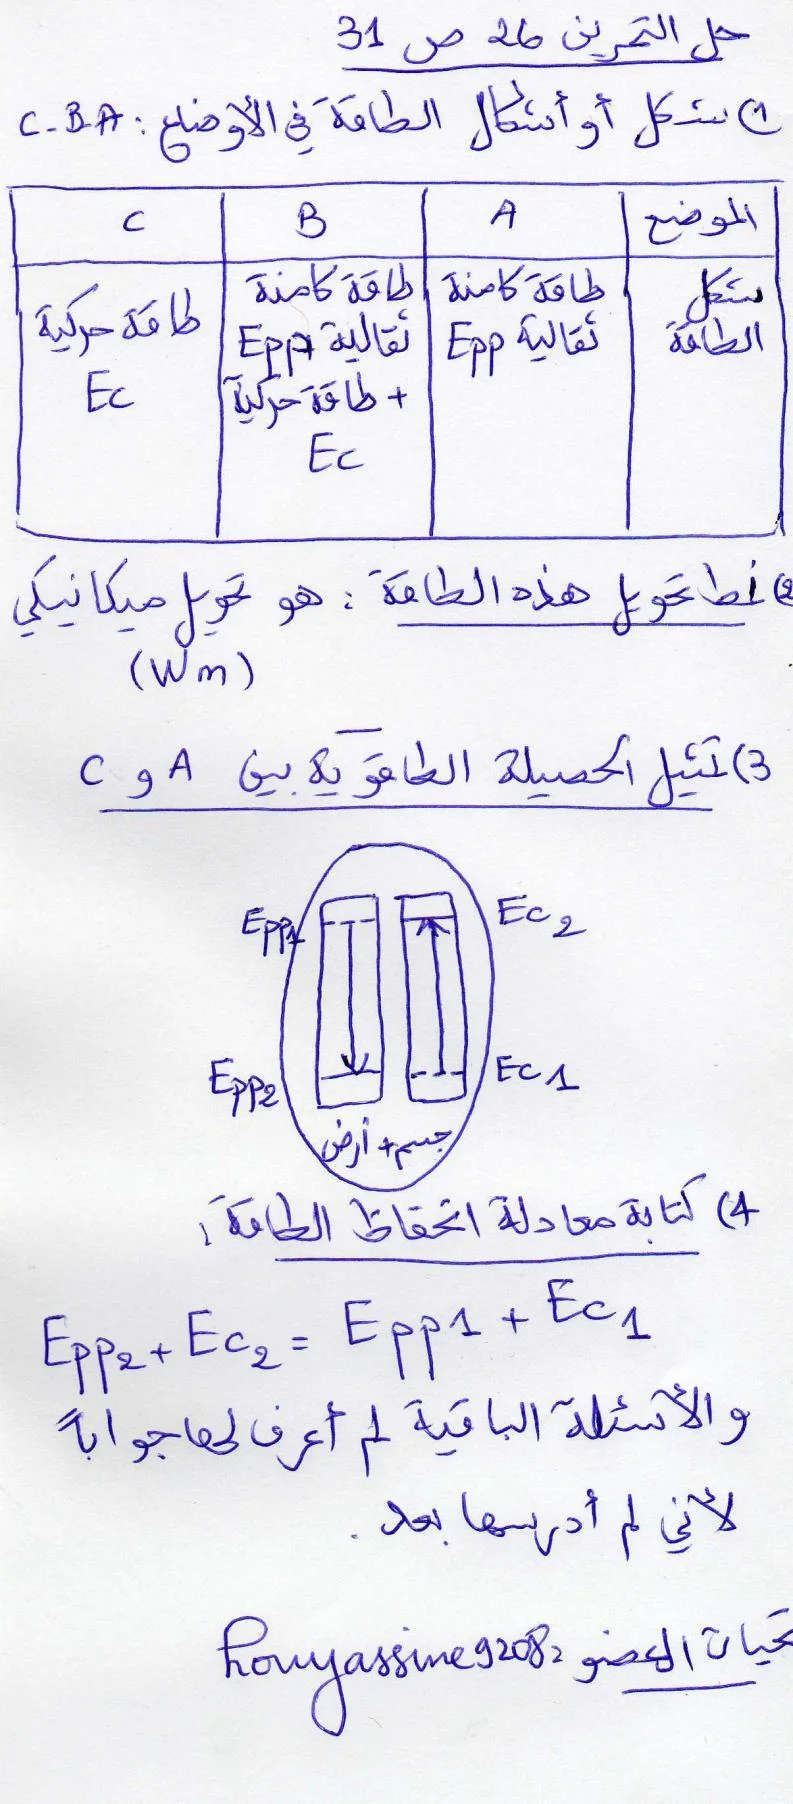 حل التمرين 26 ص 31
1) شكل أو أشكال الطاقة في الأوضاع : C-B-A
الموضع A B C
شكل الطاقة
طاقة كامنة ثقالية Epp
طاقة كامنة ثقالية Epp + طاقة حركية Ec
طاقة حركية Ec
2) نمط تحويل هذه الطاقة : هو تحويل ميكانيكي
(Wm)
3) تمثيل الحصيلة الطاقوية بين A و C
Epp1 Ec2
Epp2 Ec1
جسم + أرض
4) كتابة معادلة انحفاظ الطاقة :
Epp2 + Ec2 = Epp1 + Ec1
والأسئلة الباقية لم أعرف لها جوابا
لأني لم أدرسها بعد .
تحيات العضو houyassine92082